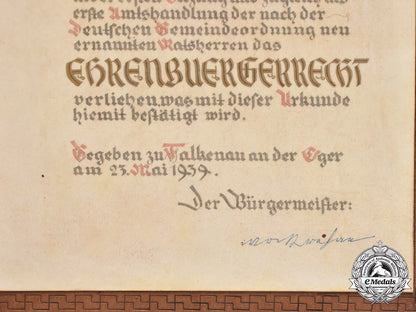 erste Amtshandlung der nach der
Deutschen Gemeindeordnung neu
ernannten Ratsherren das
EHRENBUERGERRECHT
verliehen, was mit dieser Urkunde
hiemit bestätigt wird.
Gegeben zu Falkenau an der Eger
am 23. Mai 1939.
Der Bürgermeister:
eMedals